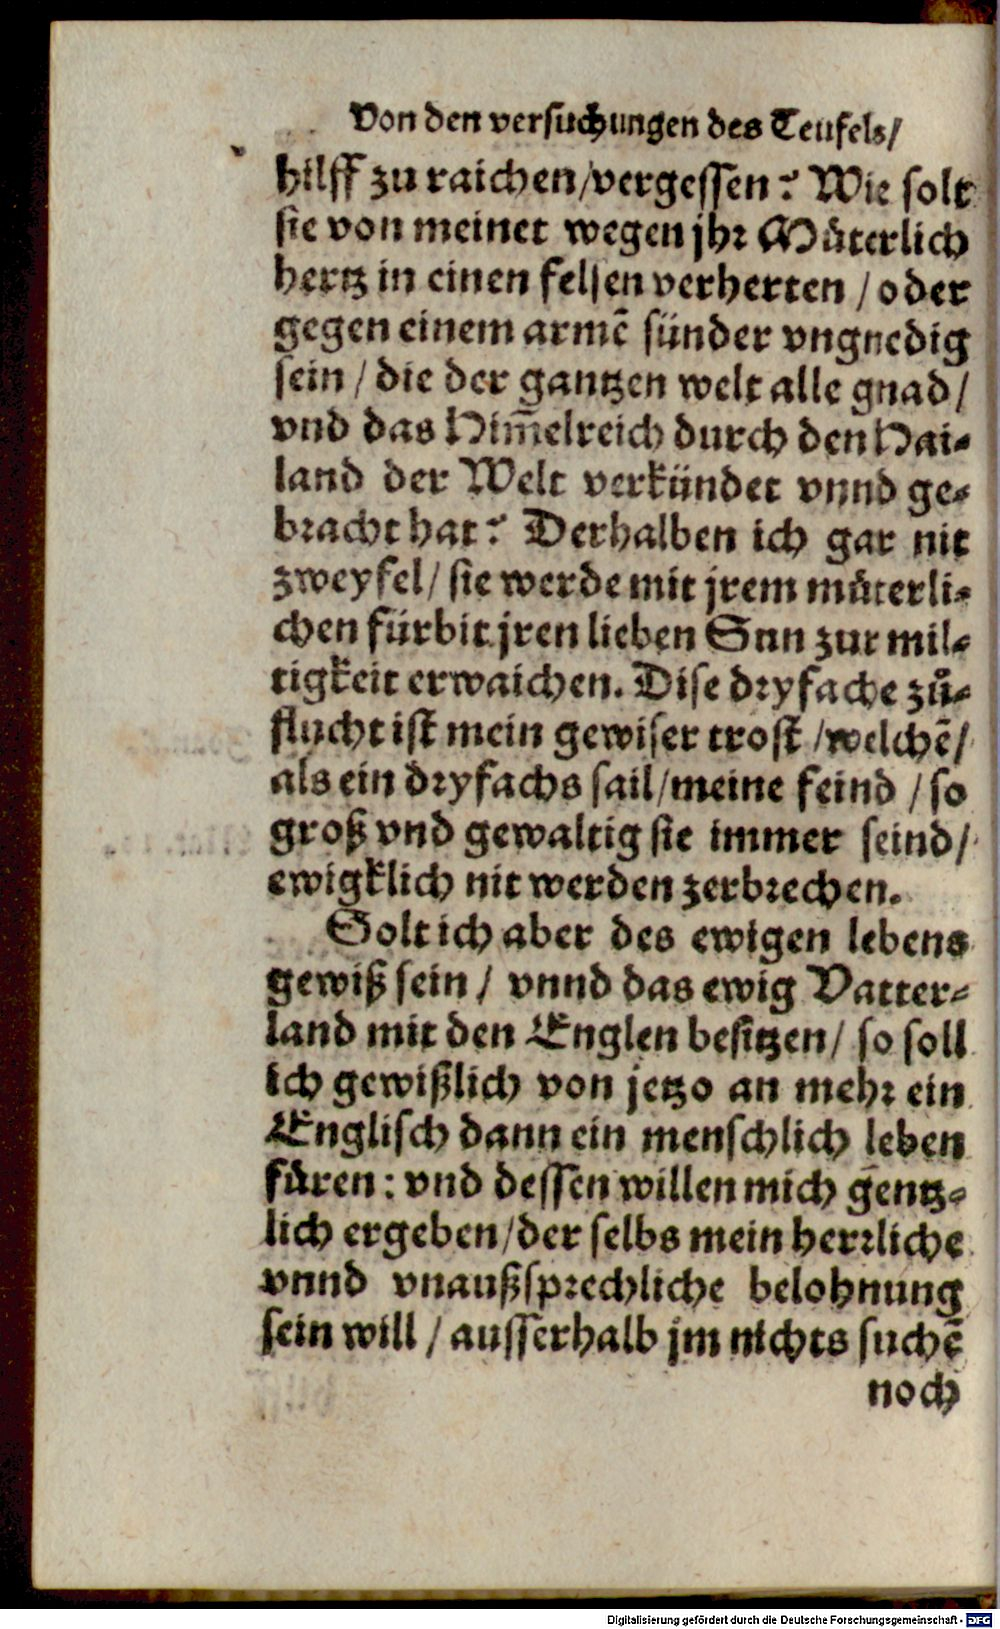 Von den versuchungen des Teufels/
hilff zu raichen/vergessen? Wie solt
sie von meinet wegen jhr Můterlich
hertz in einen felsen verherten / oder
gegen einem armē sünder vngnedig
sein / die der gantzen welt alle gnad/
vnd das Him̄elreich durch den Hai-
land der Welt verkündet vnnd ge-
bracht hat? Derhalben ich gar nit
zweyfel/ sie werde mit jrem můterli-
chen fürbit jren lieben Sun zur mil-
tigkeit erwaichen. Dise dryfache zů-
flucht ist mein gewiser trost /welchē/
als ein dryfachs sail/meine feind / so
groß vnd gewaltig sie immer seind/
ewigklich nit werden zerbrechen.
Solt ich aber des ewigen lebens
gewiß sein / vnnd das ewig Vatter-
land mit den Englen besitzen/ so soll
ich gewißlich von jetzo an mehr ein
Englisch dann ein menschlich leben
füren: vnd dessen willen mich gentz-
lich ergeben/der selbs mein herrliche
vnnd vnaußsprechliche belohnung
sein will / ausserhalb jm nichts suchē
noch
Digitalisierung gefördert durch die Deutsche Forschungsgemeinschaft - DFG